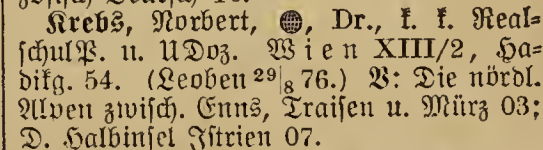 Krebs, Norbert, 🌐, Dr., k. k. Real=
schulP. u. UDoz. Wien XIII/2, Ha=
dikg. 54. (Leoben 29/8 76.) V: Die nördl.
Alpen zwisch. Enns, Traisen u. Mürz 03;
D. Halbinsel Istrien 07.